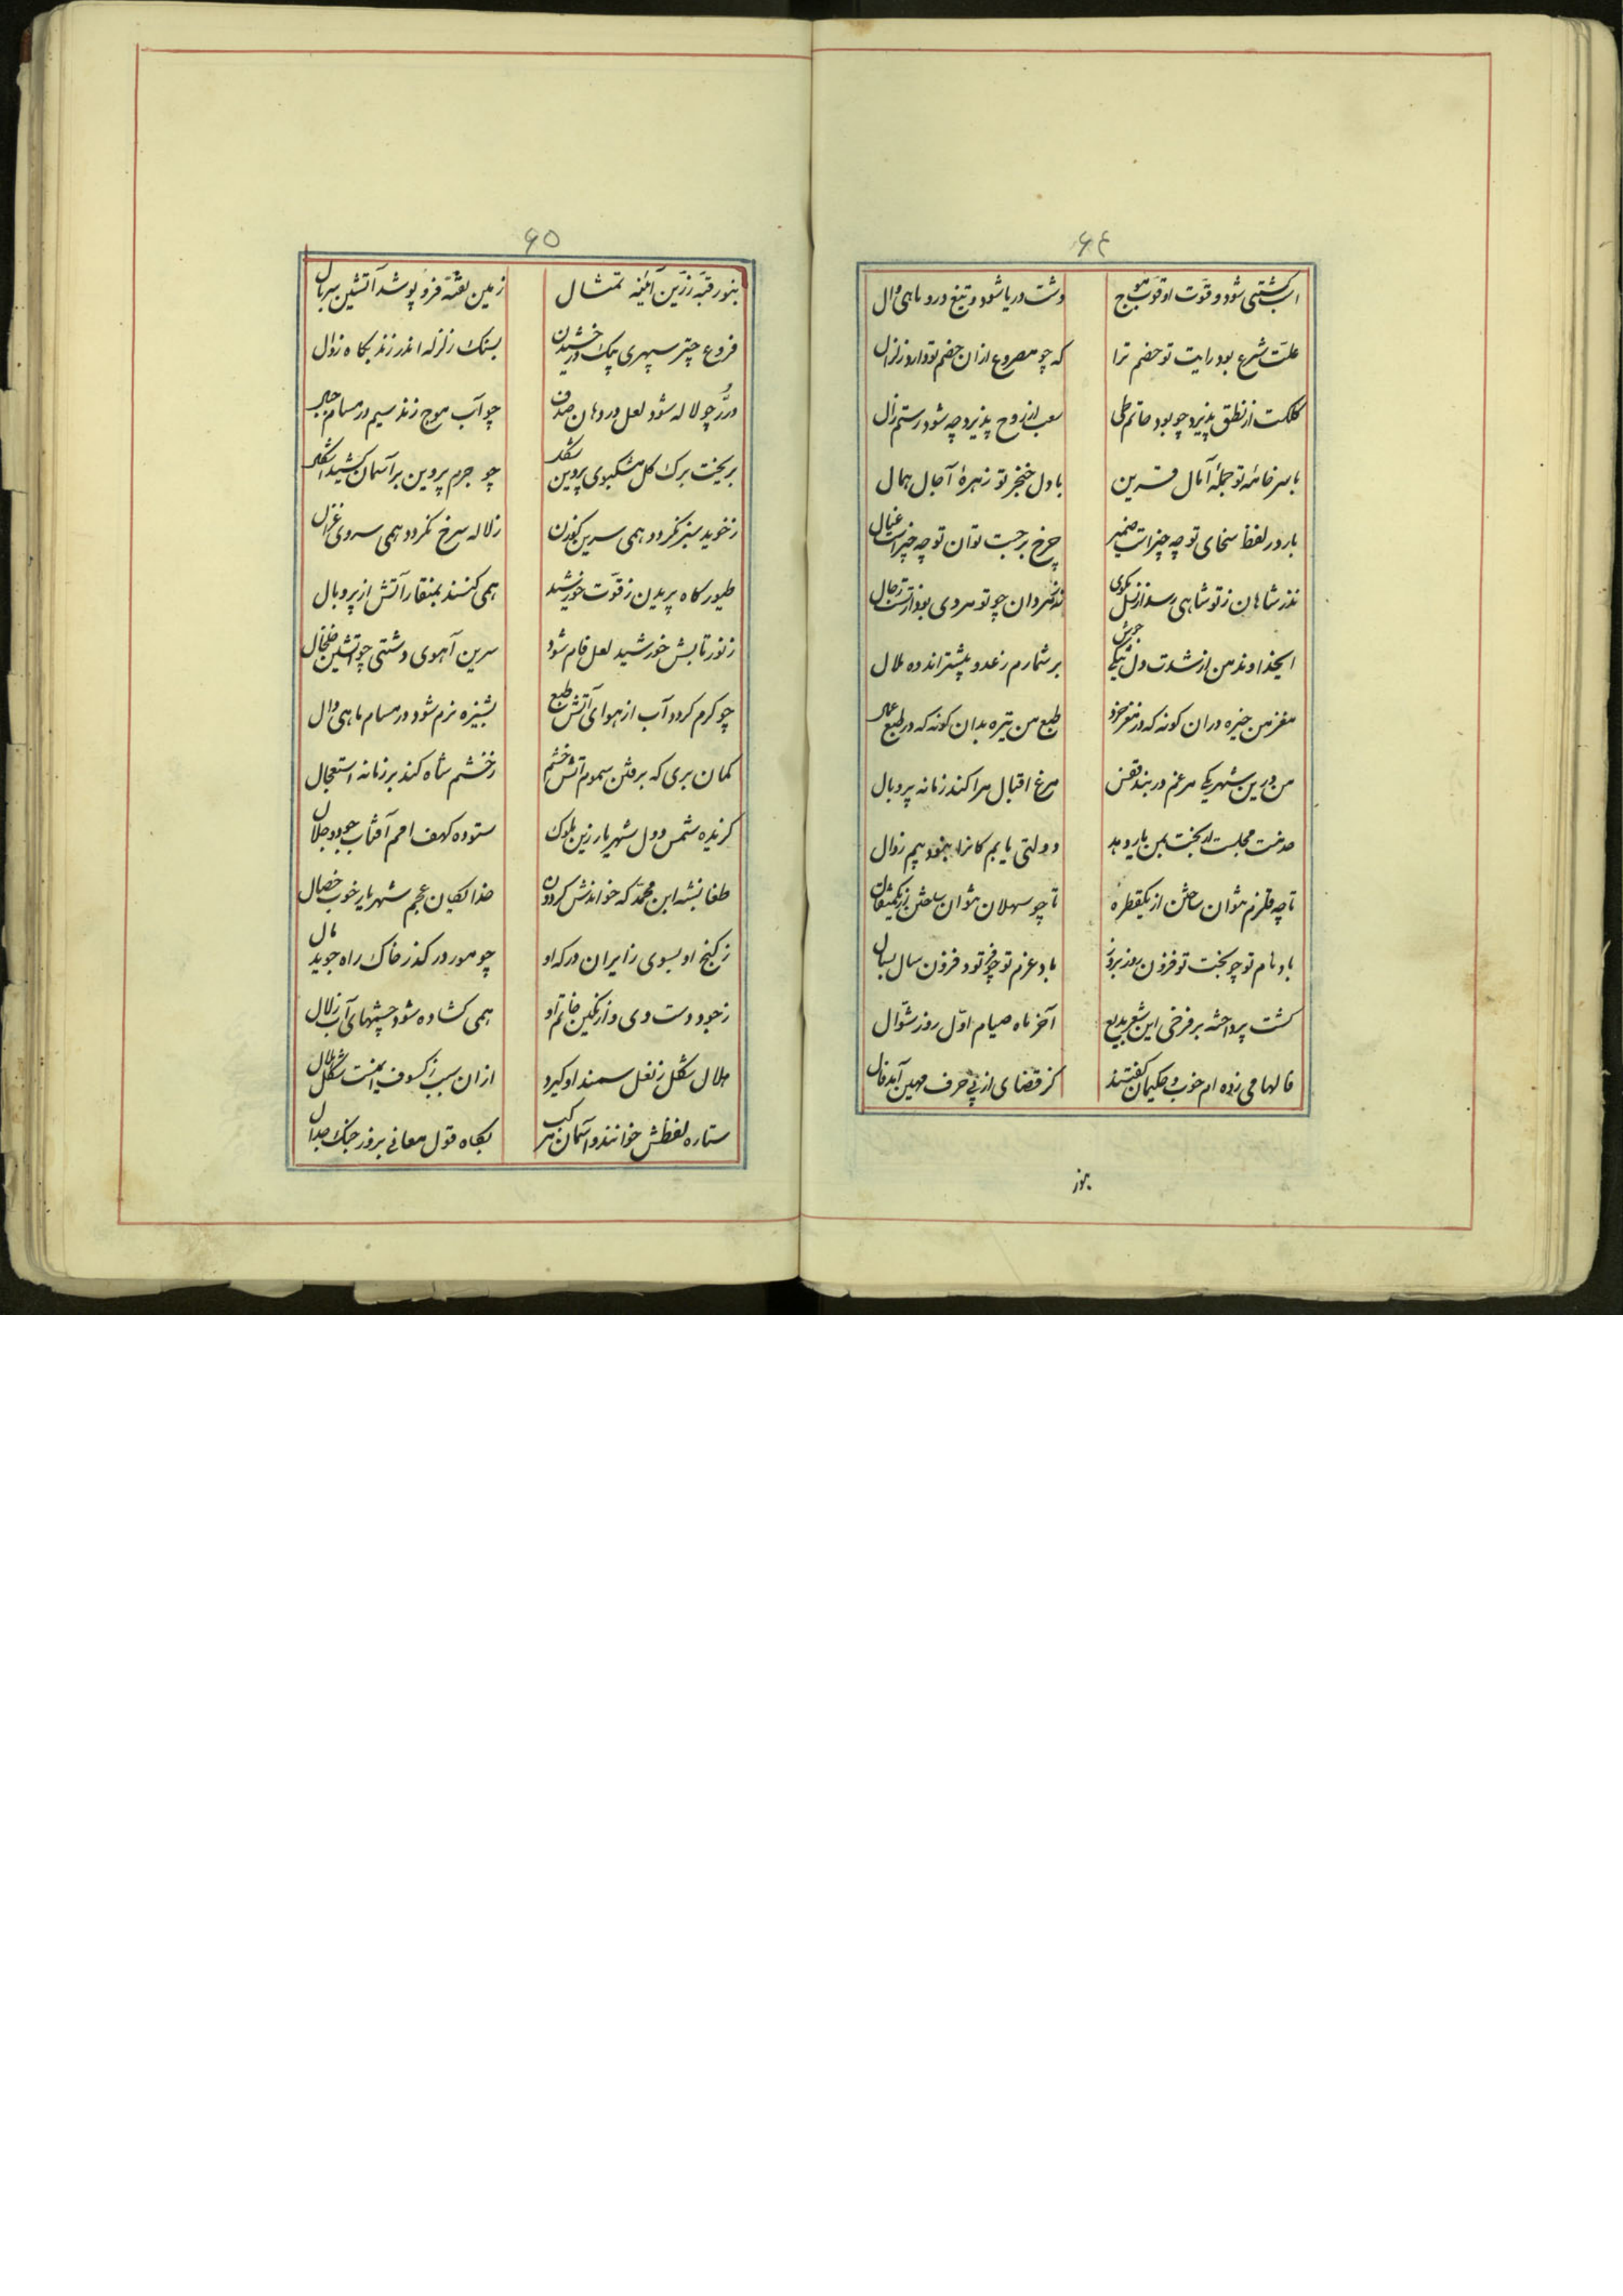 ۶۴
اسب کشتی شود و قوت او قوت موج دشت دریا شود و تیغ درو ماهی وال
علت شرع بود رایت تو خصم ترا که چو مصروع ازان خصم تو دارد زلزال
کلکت از نطق پذیرد چو بود حاتم طی لعب از روح پذیرد چه شود رستم زال
با سر خامه تو جمله آمال قرین با دل خنجر تو زهره آجال همال
بار در لفظ سخای تو چه چیز است ضمیر چرخ بر جسب توان تو چه چیز است عیال
نذر شاهان ز تو شاهی رسد از نسل نکوی نذر مردان چو تو مردی بود از پشت رجال
ایخداوند من از شدت دل برشمارم ز عدو بیشتر اندوه ملال
مغز من خیره دران کونه که در مغز خرد طبع من تیره بدان کونه که در طبع
من درین شهر یکی مرغم در بند قفس مرغ اقبال مرا کند زمانه پر و بال
خدمت مجلست ار بخت بمن باز دهد دولتی یابم کانرا نبود بیم زوال
تا چه قلزم نتوان ساختن از یکقطره تا چو سهلان نتوان ساختن از یکمثقال
باد نام تو چو بخت تو فزون روز بروز باد عزم تو چو فخر تو فزون سال بسال
کشت پرداخته بر فرخی این شعر بدیع آخر ماه صیام اول روز شوال
فالها می زده ام خوب و حکیمان کفتند کز قضای ازپی حرف مهین آید فال
بنور
۶۵
بنور قبه زرین آئینه تمثال زمین تفته فرو پوشد آتشین سربال
فروغ چتر سپهری بیک درخشیدن بسنک زلزله اندر زند بکاه زوال
درر چو لاله شود لعل در دهان صدف چو آب موج زند سیم در مسام جبال
بریخت برک کل مشکبوی پروین شکل چو جرم پروین بر آسمان کشید اشکال
ز خوید سبز نکردد همی سرین کوزن ز لاله سرخ نکردد همی سروی غزال
طیور کاه پریدن ز قوت خورشید همی کنند بمنقار آتش از پر و بال
ز نور تابش خورشید لعل فام شود سرین آهوی دشتی چو آتشین خلخال
چو کرم کردد آب از هوای آتش طبع بشیزه نرم شود در مسام ماهی وال
کمان بری که برفتن سموم آتش خشم ز خشم شاه کند بر زمانه استعجال
کزیده شمس دول شهریار زین ملوک ستوده کهف امم آفتاب جود و جلال
طغانشه ابن محمد که خواندش کردون خدایکان عجم شهریار خوب خصال
ز کنج او بسوی زایران درکه او چو مور در کذر خاک راه جوید مال
ز جود دست وی و از نکین خاتم او همی کشاده شود چشمهای آب زلال
هلال شکل ز نعل سمند او کیرد ازان سبب ز کسوف ایمنست شکل هلال
ستاره لفظش خوانند و آسمان مرکب بکاه قول معانی بروز جنک جدال